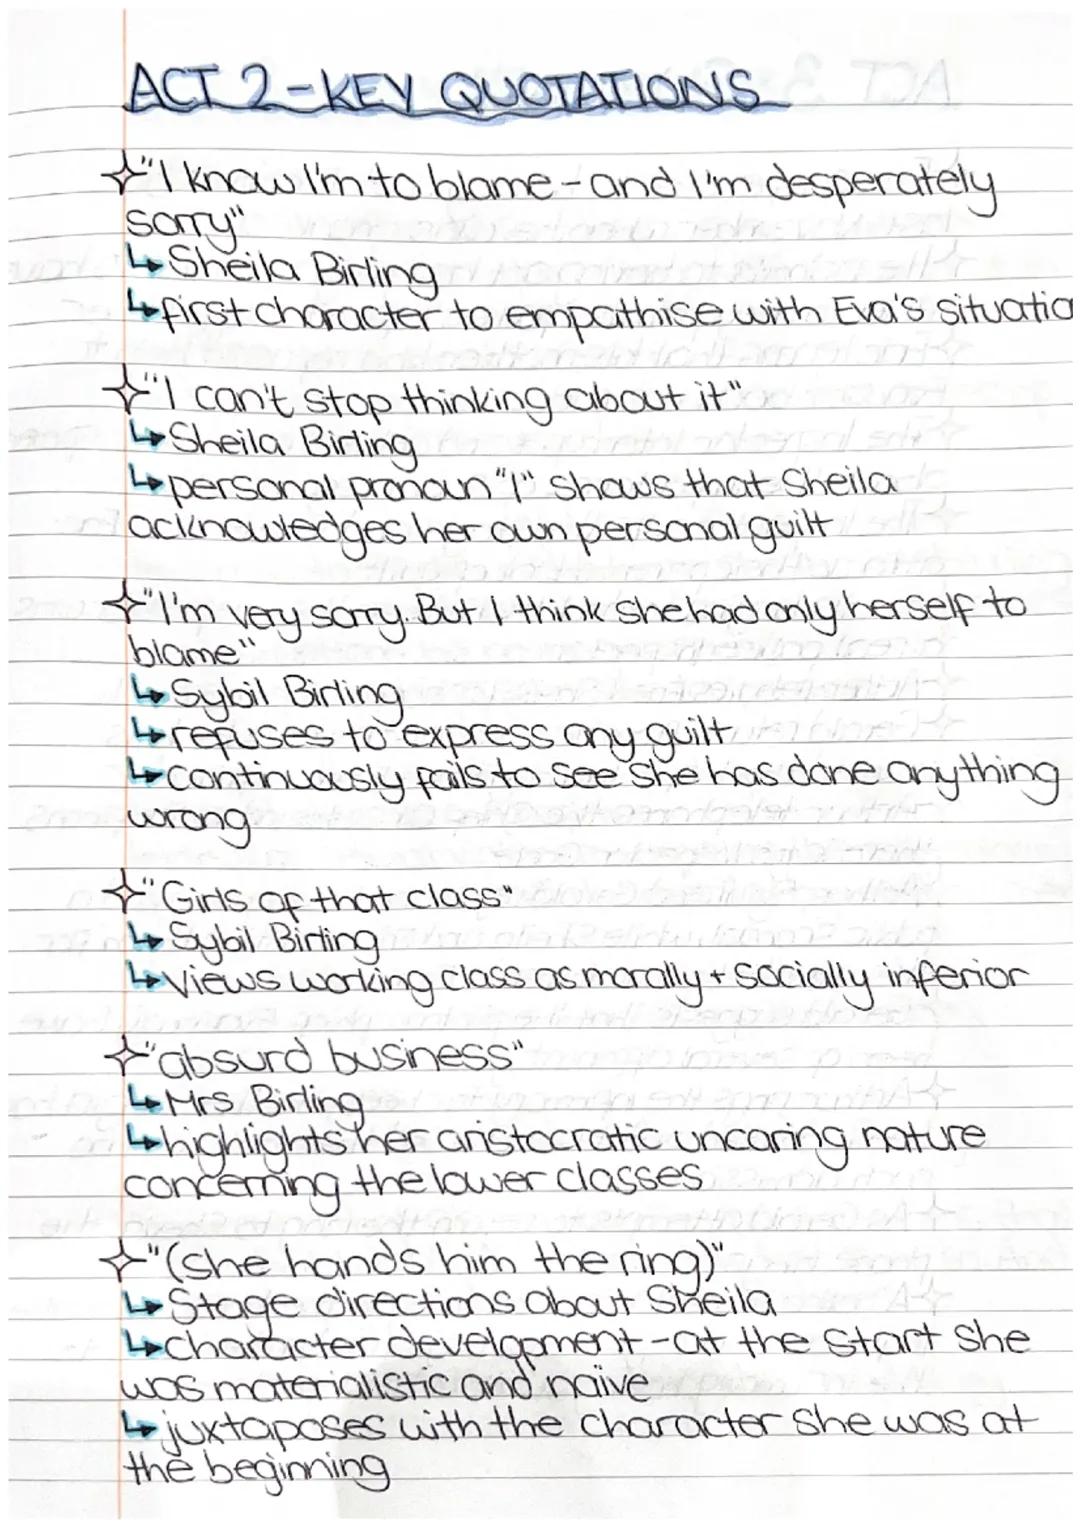 ACT 2-KEY QUOTATIONS
"I know I'm to blame - and I'm desperately
sorry"
↳ Sheila Birling
↳ first character to empathise with Eva's situatio
"I can't stop thinking about it"
↳ Sheila Birling
↳ personal pronoun "I" shows that Sheila
acknowledges her own personal guilt
"I'm very sorry. But I think she had only herself to
blame"
↳ Sybil Birling
↳ refuses to express any guilt
↳ continuously fails to see she has done anything
wrong
"Girls of that class"
↳ Sybil Birling
↳ views working class as morally + socially inferior
"absurd business"
↳ Mrs Birling
↳ highlights her aristocratic uncaring nature
concerning the lower classes
"(she hands him the ring)"
↳ Stage directions about Sheila
↳ character development - at the start she
was materialistic and naive
↳ juxtaposes with the character she was at
the beginning